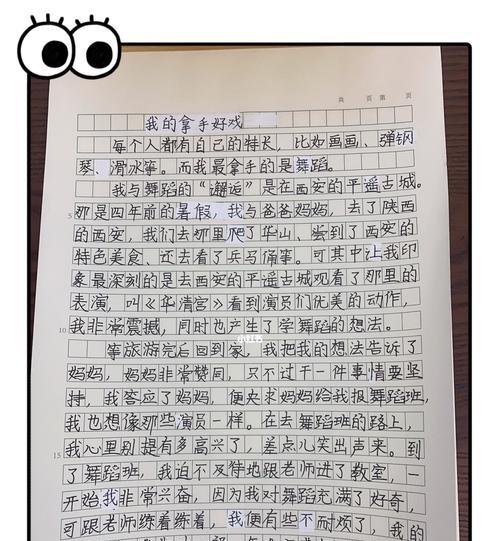 共 页 第 页
我的拿手好戏
每个人都有自己的特长，比如画画、弹钢
琴、滑冰等。而我最拿手的是舞蹈。
我与舞蹈的“邂逅”是在西安的平遥古城。
5 那是四年前的暑假，我与爸爸妈妈，去了陕西
的西安，我们去那里爬了华山、尝到了西安的
特色美食、还去看了兵马俑等。可其中让我印
象最深刻的是去西安的平遥古城观看了那里的
表演，叫《华清宫》看到演员们优美的动作，
10 我非常震撼，同时也产生了学舞蹈的想法。
等旅游完后回到家，我把我的想法告诉了
妈妈，妈妈非常赞同，只不过干一件事情要坚
持，我答应了妈妈，便央求妈妈给我报舞蹈班，
我也想像那些演员一样。在去舞蹈班的路上，
15 我心里别提有多高兴了，差点儿笑出声来。到
了舞蹈班，我迫不及待地跟老师进了教室，一
开始我非常兴奋，因为我对舞蹈充满了好奇，
可跟老师练着练着，我便有些不耐烦了，我的